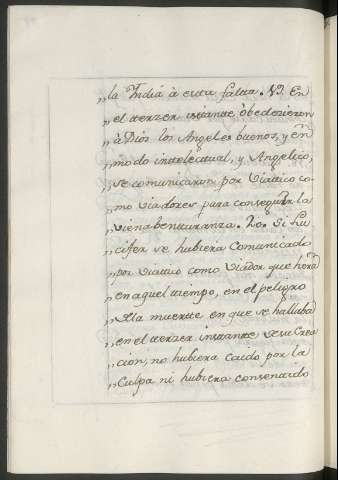 „la Indiá à esta falta. 19. En
„el terzer instante òbedesieron
„à Dios los Angeles buenos, y en
„modo intelectual, y Angelico,
„se comunicaron por Viatico co-
„mo Viadores para conseguir la
„vienabenturanza. 20. Si Lu-
„cifer se hubiera Comunicado
„por Viatico como Viador que hera
„en aquel tiempo, en el peligro
„de la muerte en que se hallaba
„en el terzer instante de su Crea
„cion, no hubiera caido por la
„Culpa ni hubiera consentido